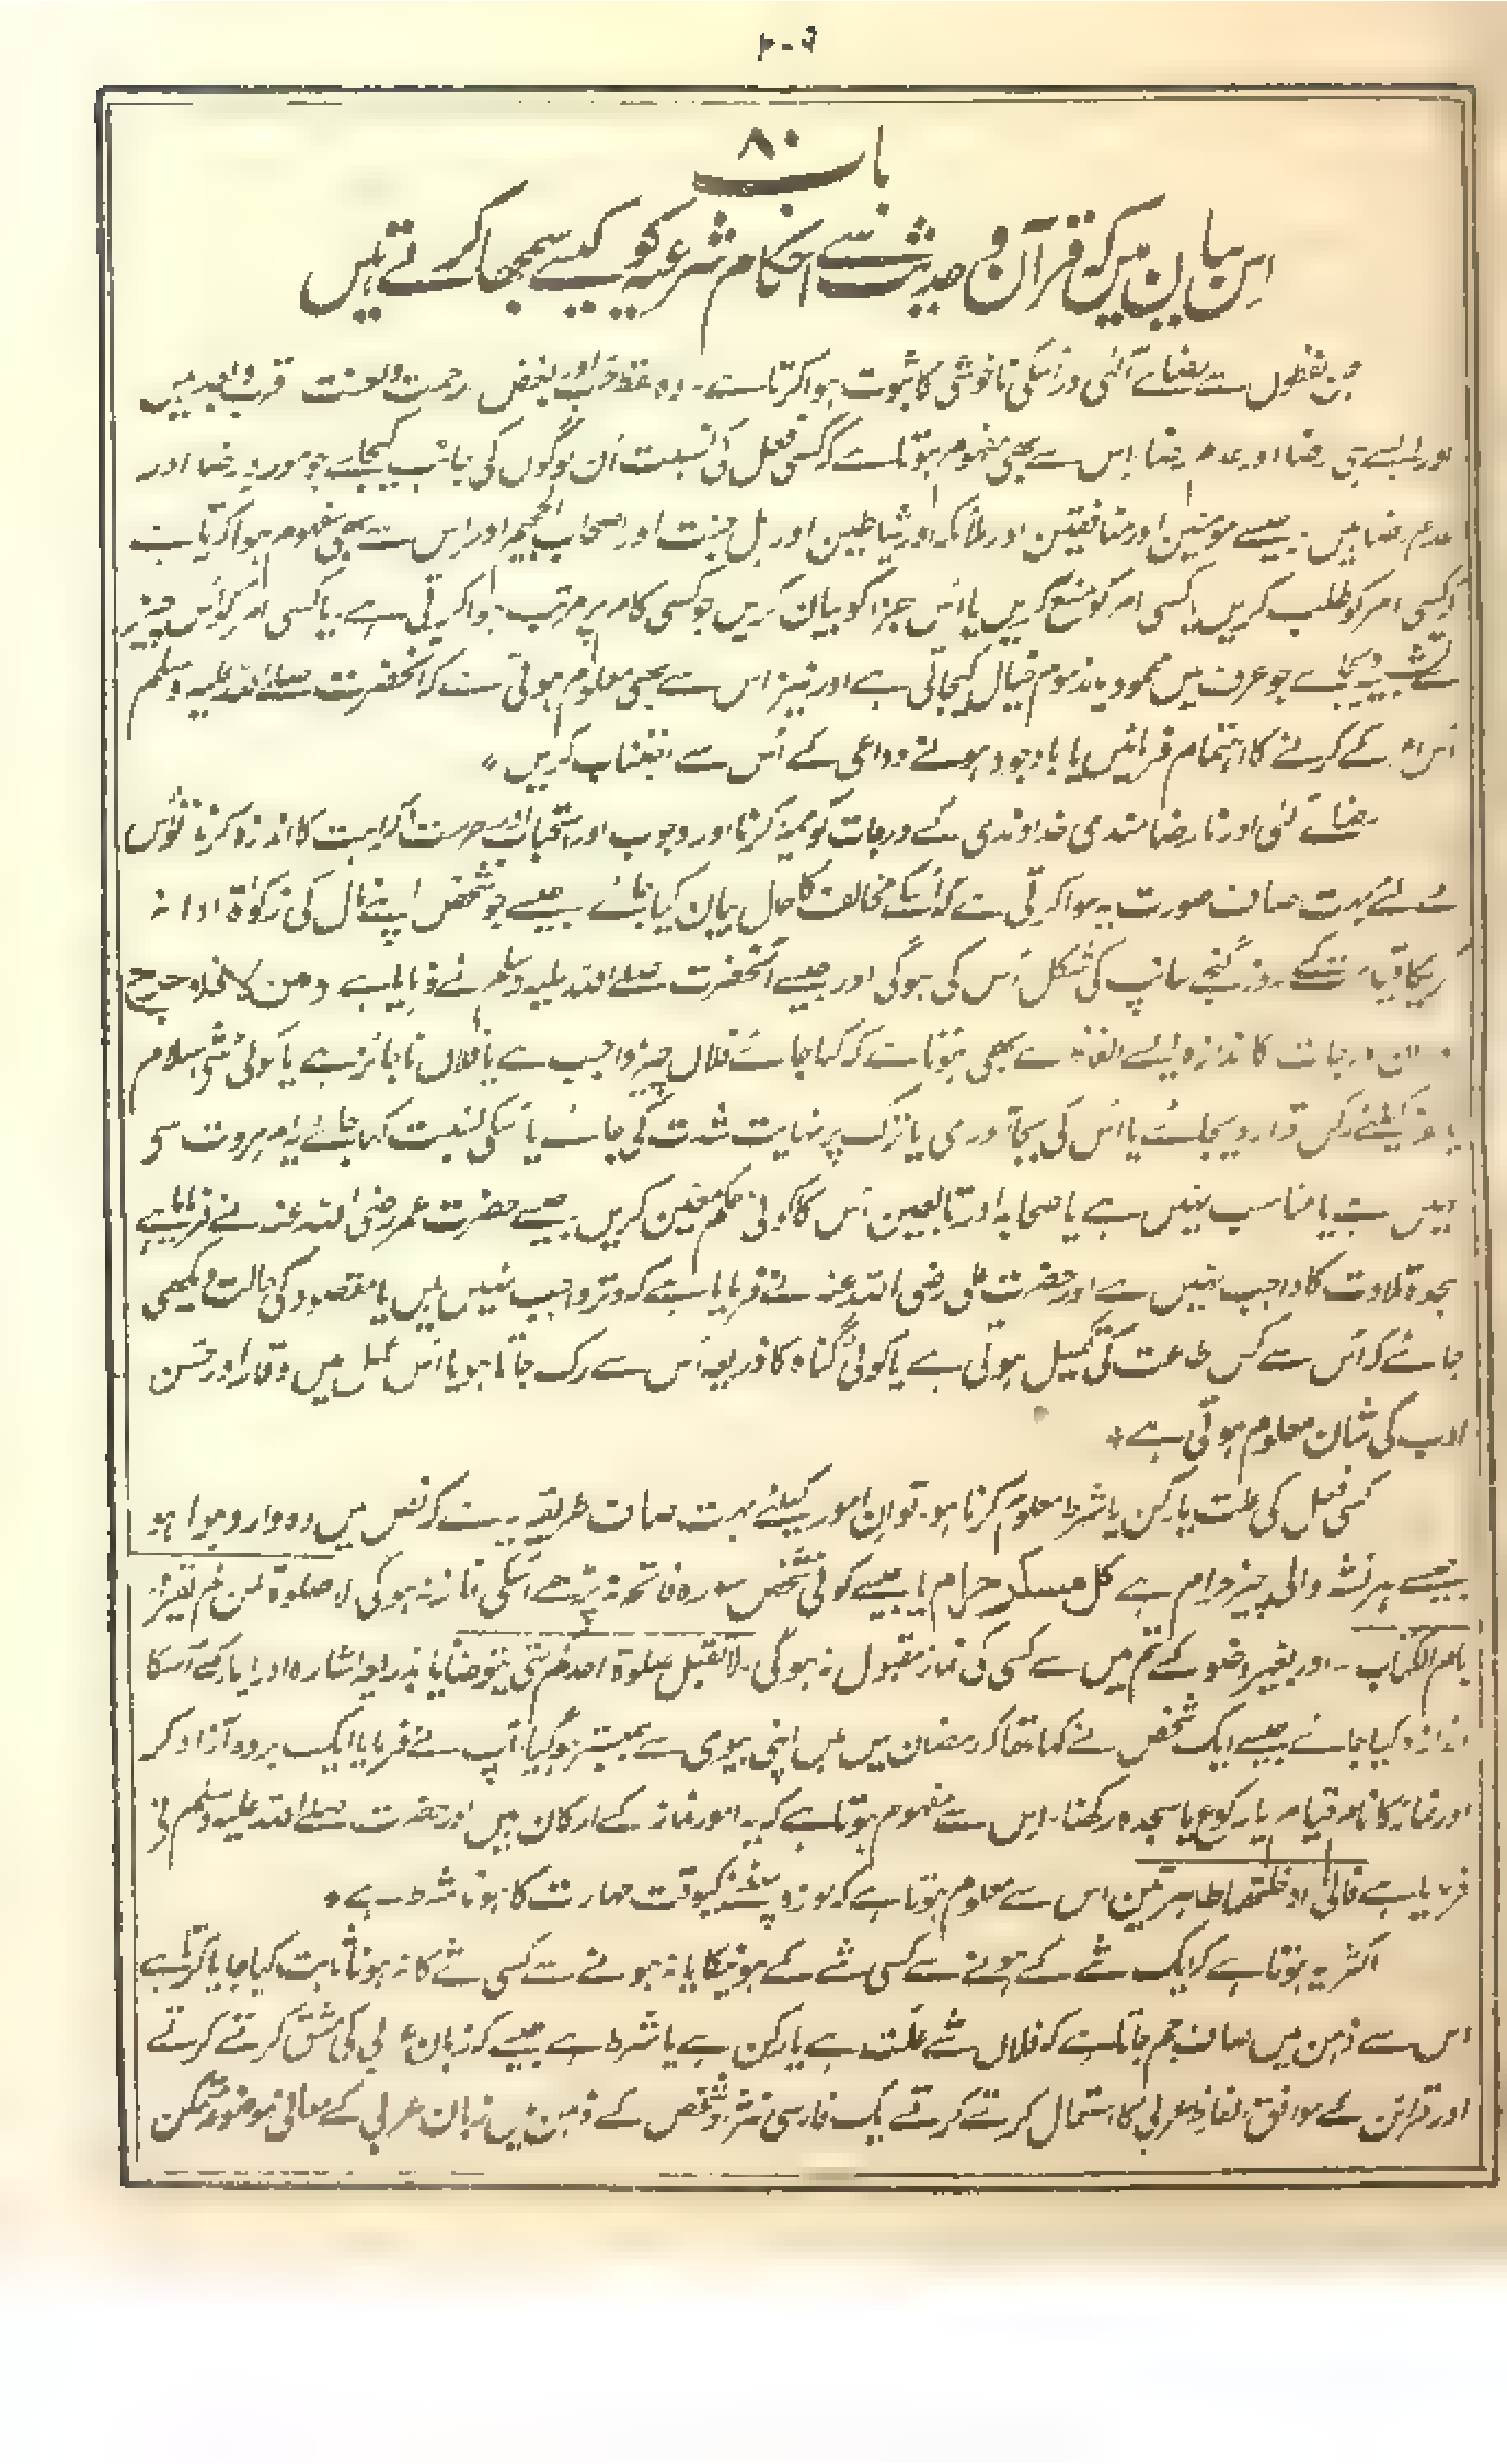 باب ۸۰
اس بیان میں کہ قرآن و حدیث سے احکام شرعیہ کو کیسے سمجھا کرتے ہیں
جن لفظوں سے رضائے الٰہی اور اسکی ناخوشی کا ثبوت ہوا کرتا ہے۔ وہ لفظ حب اور بغض رحمت و لعنت قرب و بعد ہیں
اور ایسے ہی رضا اور عدم رضا اس سے بھی مفہوم ہوتا ہے کہ کسی فعل کی نسبت ان لوگوں کی جانب کیجائے جو مورد رضا اور
عدم رضا ہیں۔ جیسے مومنین اور منافقین اور ملائکہ اور شیاطین اور اہل جنت اور اصحاب الجحیم اور اس سے بھی مفہوم ہوا کرتا ہے
کہ کسی امر کو طلب کریں یا کسی امر کو منع کریں یا اُس جزا کو بیان کریں جو کسی کام پر مرتب ہوا کرتی ہے۔ یا کسی امر کو اُس چیز
سے تشبیہ دیجائے جو عرف میں محمود یا مذموم خیال کیجاتی ہے اور نیز اس سے بھی معلوم ہوتی ہے کہ آنحضرت صلے اللہ علیہ وسلم
اس امر کے کرنے کا اہتمام فرمائیں یا باوجود ہونے دواعی کے اُس سے اجتناب کریں *
رضائے الٰہی اور نارضامندی خداوندی کے درجات کو تمیز کرنا اور وجوب اور استحباب اور حرمت اور کراہت کا اندازہ کرنا تو اس
کے لئے بہت صاف صورت یہ ہوا کرتی ہے کہ اُسکے مخالف کا حال بیان کیا جائے جیسے جو شخص اپنے مال کی زکوٰۃ ادا نہ
کریگا قیامت کے روز گنجے سانپ کی شکل اُس کی ہوگی اور جیسے آنحضرت صلے اللہ علیہ وسلم نے فرمایا ہے ومن لا فلا حرج
ان درجات کا اندازہ ایسے الفاظ سے بھی ہوتا ہے کہ کہا جائے فلاں چیز واجب ہے یا فلاں ناجائز ہے یا کوئی شئی اسلام
یا کفر کیلئے رکن قرار دیجائے یا اُس کی بجا آوری یا ترک پر نہایت شدت کی جائے یا اُسکی نسبت کہا جائے یہ امر مروت سی
نہیں ہے یا مناسب نہیں ہے یا صحابہ اور تابعین اُس کا کوئی حکم معین کریں۔ جیسے حضرت عمر رضی اللہ عنہ نے فرمایا ہے
سجدۂ تلاوت کا واجب نہیں ہے اور حضرت علی رضی اللہ عنہ نے فرمایا ہے کہ وتر واجب نہیں ہیں یا مقصود کی حالت دیکھی
جائے کہ اُس سے کس طاعت کی تکمیل ہوتی ہے یا کوئی گناہ کا ذریعہ اُس سے رک جاتا ہو یا اُس عمل میں وقار اور حسن
ادب کی شان معلوم ہوتی ہے *
کسی فعل کی علت یا رکن یا شرط معلوم کرنا ہو۔ تو ان امور کیلئے بہت صاف طریقہ یہ ہے کہ نص میں وہ وارد ہوا ہو
جیسے ہر نشہ والی چیز حرام ہے کل مسکر حرام یا جیسے کوئی شخص سورہ فاتحہ نہ پڑھے اُسکی نماز نہ ہوگی لا صلوۃ لمن لم یقرا
بام الکتاب۔ اور بغیر وضو کے تم میں سے کسی کی نماز مقبول نہ ہوگی۔ لا تقبل صلوۃ احدکم حتی یتوضا یا بذریعہ اشارہ اور ایما کے اُسکا
اندازہ کیا جائے جیسے ایک شخص نے کہا تھا کہ رمضان میں میں اپنی بیوی سے ہمبستر ہوگیا آپ نے فرمایا ایک بردہ آزاد کر
اور نماز کا نام قیام یا رکوع یا سجدہ رکھنا۔ اس سے مفہوم ہوتا ہے کہ یہ امور نماز کے ارکان ہیں اور حضرت صلے اللہ علیہ وسلم نے
فرمایا ہے فانی ادخلتهما طاہرتین اس سے معلوم ہوتا ہے کہ موزہ کیوقت طہارت کا ہونا شرط ہے *
اکثر یہ ہوتا ہے کہ ایک شے کے ہونے سے کسی شے کے ہونیکا یا نہ ہونے سے کسی شے کا نہ ہونا ثابت کیا جایا کرتا ہے
اس سے ذہن میں صاف جم جاتا ہے کہ فلاں شے علت ہے یا رکن ہے یا شرط ہے جیسے کہ زبان عربی کی مشق کرتے کرتے
اور قرائن کے موافق الفاظ عربی کا استعمال کرتے کرتے ایک فارسی نژاد شخص کے ذہن میں زبان عربی کے معانی موضوع متمکن